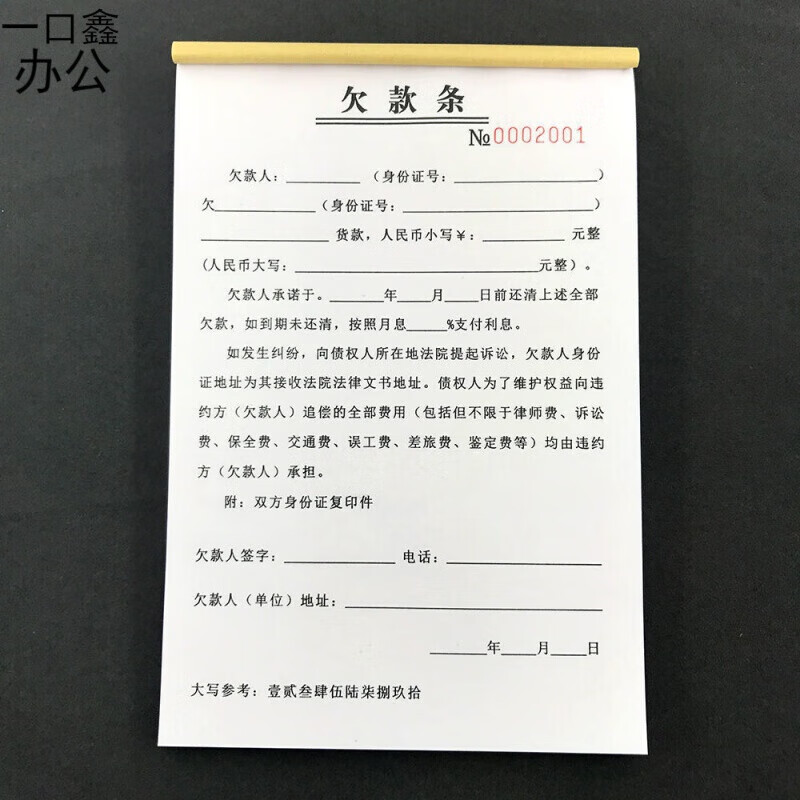 一口鑫
办公
欠款条
№0002001
欠款人：________（身份证号：________________）
欠___________（身份证号：_____________________）
______________货款，人民币小写￥：_________元整
(人民币大写：___________________________元整）。
欠款人承诺于。______年____月____日前还清上述全部
欠款，如到期未还清，按照月息_____%支付利息。
如发生纠纷，向债权人所在地法院提起诉讼，欠款人身份
证地址为其接收法院法律文书地址。债权人为了维护权益向违
约方（欠款人）追偿的全部费用（包括但不限于律师费、诉讼
费、保全费、交通费、误工费、差旅费、鉴定费等）均由违约
方（欠款人）承担。
附：双方身份证复印件
欠款人签字：_____________电话：__________________
欠款人（单位）地址：______________________________
_______年____月____日
大写参考：壹贰叁肆伍陆柒捌玖拾